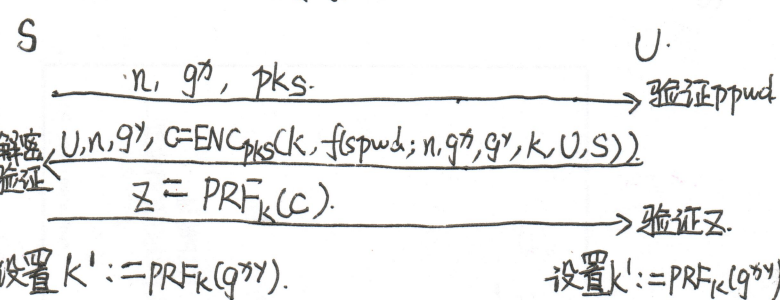 S U.
n, gˣ, pkₛ.
验证ppwd
U, n, gʸ, C=ENC_pks(k, f(spwd; n, gˣ, gʸ, k, U, S)).
解密
验证
Z = PRFₖ(C).
验证z.
设置k':=PRFₖ(gˣʸ). 设置k':=PRFₖ(gˣʸ)